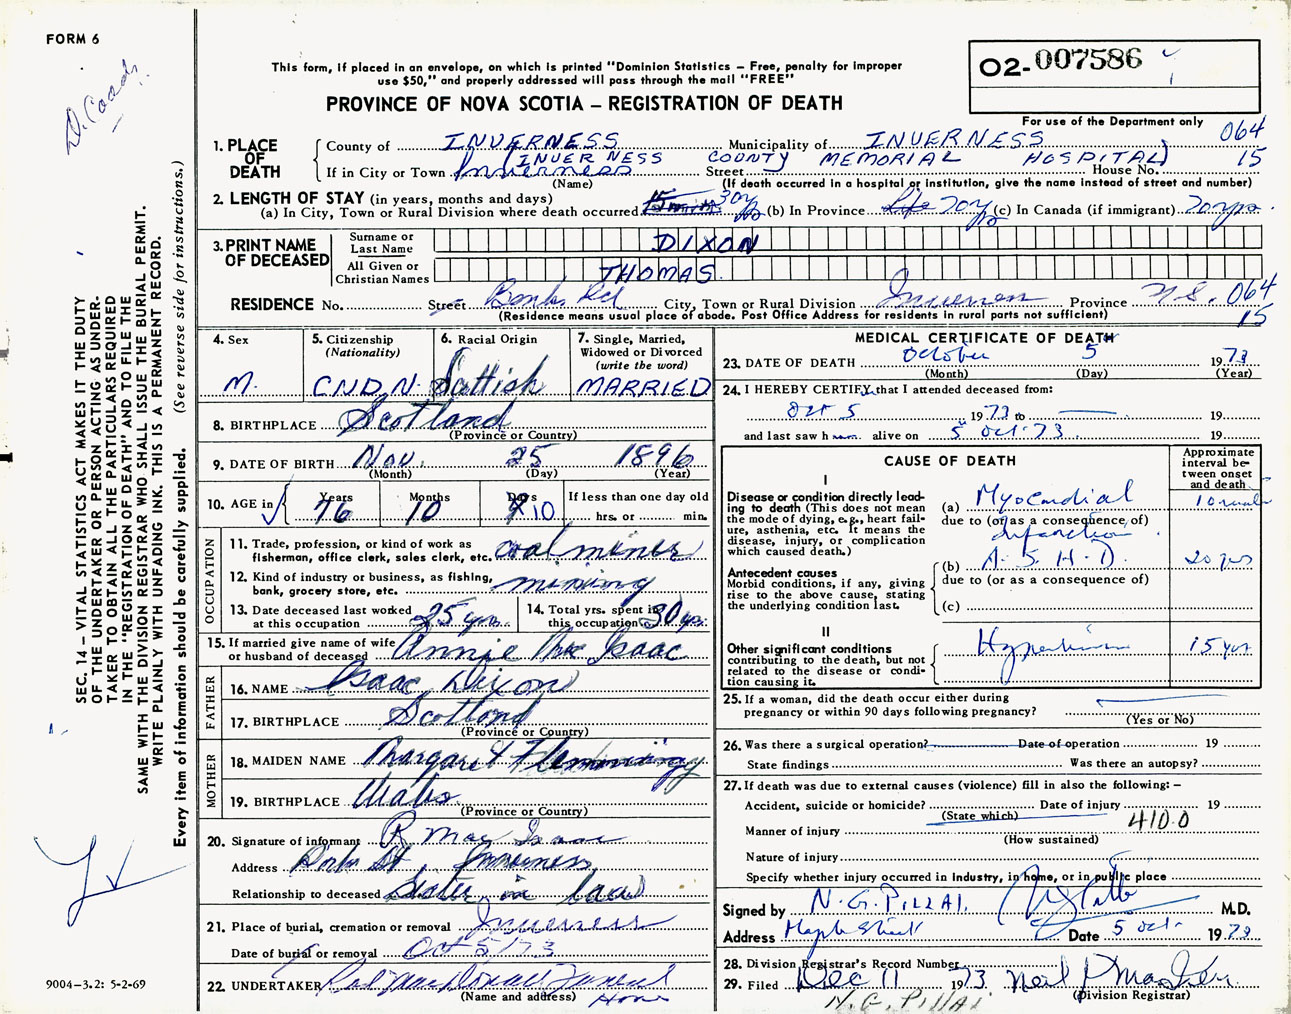 FORM 6
D. Coady
This form, if placed in an envelope, on which is printed "Dominion Statistics – Free, penalty for improper
use $50," and properly addressed will pass through the mail "FREE"
PROVINCE OF NOVA SCOTIA – REGISTRATION OF DEATH
02-007586
For use of the Department only
064
15
1. PLACE OF DEATH
County of INVERNESS Municipality of INVERNESS
INVERNESS COUNTY MEMORIAL HOSPITAL
If in City or Town Inverness Street House No.
(Name) (If death occurred in a hospital or institution, give the name instead of street and number)
2. LENGTH OF STAY (in years, months and days)
(a) In City, Town or Rural Division where death occurred 30 yrs (b) In Province Life 70 yrs (c) In Canada (if immigrant) 70 yrs.
3. PRINT NAME OF DECEASED
Surname or Last Name DIXON
All Given or Christian Names THOMAS
RESIDENCE No. Street Banks Rd City, Town or Rural Division Inverness Province N.S. 064
(Residence means usual place of abode. Post Office Address for residents in rural parts not sufficient) 15
4. Sex M.
5. Citizenship (Nationality) CNDN.
6. Racial Origin Scottish
7. Single, Married, Widowed or Divorced (write the word) MARRIED
8. BIRTHPLACE Scotland
(Province or Country)
9. DATE OF BIRTH Nov. 25 1896
(Month) (Day) (Year)
10. AGE in Years 76 Months 10 Days 10 If less than one day old hrs. or min.
OCCUPATION
11. Trade, profession, or kind of work as fisherman, office clerk, sales clerk, etc. coal miner
12. Kind of industry or business, as fishing, bank, grocery store, etc. mining
13. Date deceased last worked at this occupation 25 yrs.
14. Total yrs. spent in this occupation 30 yrs.
15. If married give name of wife or husband of deceased Annie Mac Isaac
FATHER
16. NAME Isaac Dixon
17. BIRTHPLACE Scotland
(Province or Country)
MOTHER
18. MAIDEN NAME Margaret Flemming
19. BIRTHPLACE Wales
(Province or Country)
20. Signature of informant R. Mac Isaac
Address St. Inverness
Relationship to deceased Sister in law
21. Place of burial, cremation or removal Inverness
Date of burial or removal Oct 5/73
22. UNDERTAKER Funeral Home
(Name and address)
MEDICAL CERTIFICATE OF DEATH
23. DATE OF DEATH October 5 1973
(Month) (Day) (Year)
24. I HEREBY CERTIFY that I attended deceased from:
Oct 5 1973 to 19
and last saw h alive on 5 Oct. 73. 19
CAUSE OF DEATH
Approximate interval between onset and death
I
Disease or condition directly leading to death (This does not mean the mode of dying, e.g., heart failure, asthenia, etc. It means the disease, injury, or complication which caused death.)
(a) Myocardial
due to (or as a consequence of)
infarction
(b) A. S. H. D. 20 yrs
due to (or as a consequence of)
(c)
Antecedent causes
Morbid conditions, if any, giving rise to the above cause, stating the underlying condition last.
II
Other significant conditions contributing to the death, but not related to the disease or condition causing it.
Hypertension 15 yrs
25. If a woman, did the death occur either during
pregnancy or within 90 days following pregnancy?
(Yes or No)
26. Was there a surgical operation? Date of operation 19
State findings Was there an autopsy?
27. If death was due to external causes (violence) fill in also the following: –
Accident, suicide or homicide? Date of injury 19
(State which) 410.0
Manner of injury
(How sustained)
Nature of injury
Specify whether injury occurred in industry, in home, or in public place
Signed by N. G. PILLAI. M.D.
Address Maple Street Date 5 Oct. 1973
28. Division Registrar's Record Number
29. Filed Dec 11 1973
(Division Registrar)
N. G. Pillai
SEC. 14 – VITAL STATISTICS ACT MAKES IT THE DUTY
OF THE UNDERTAKER OR PERSON ACTING AS UNDER-
TAKER TO OBTAIN ALL THE PARTICULARS REQUIRED
IN THE "REGISTRATION OF DEATH" AND TO FILE THE
SAME WITH THE DIVISION REGISTRAR WHO SHALL ISSUE THE BURIAL PERMIT.
WRITE PLAINLY WITH UNFADING INK. THIS IS A PERMANENT RECORD.
Every item of information should be carefully supplied. (See reverse side for instructions.)
9004-3.2: 5-2-69